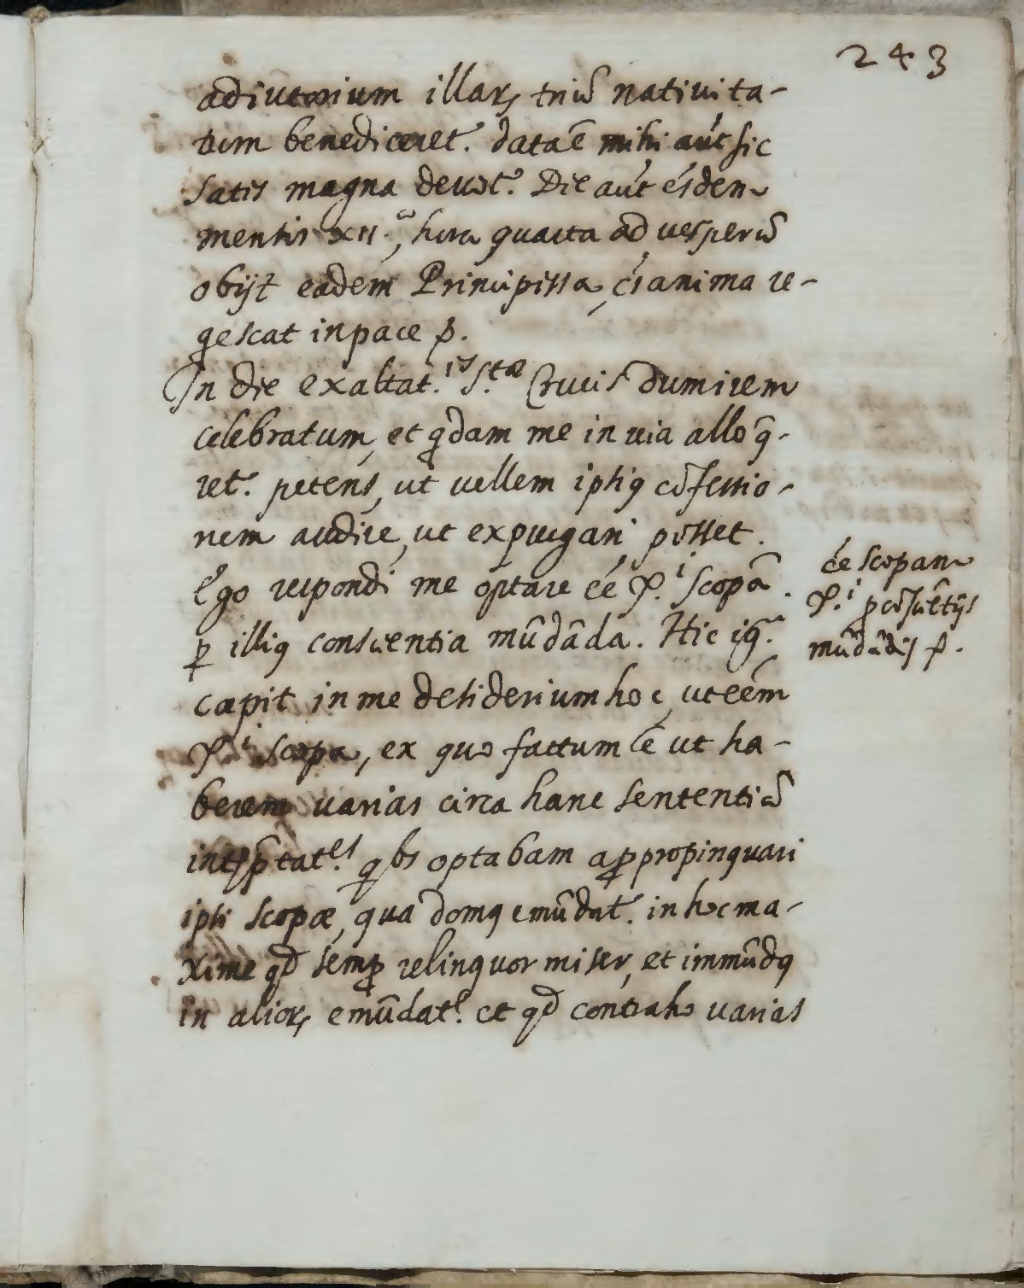 243
adiutorium illarꝝ triũ natiuita-
tum benediceret. data ẽ mihi aũt sic
satis magna deuot. Die aũt eisdem
mensis XII.ᵃ, hora quarta ad uesperũ
obijt eadem Principissa, c's anima re-
qescat in pace p.
In die exaltat.ⁱˢ S.ᵗᵃᵉ Crucis dum irem
celebratum, et qdam me in uia alloq̃-
ret. petens, ut uellem ipsiꝰ cõfessio-
nem audire, ut expurgari posset.
Ego respondi me optare ee' X.ⁱ scopã.
ꝑ illiꝰ conscientia mũdãda. Hic ig.ʳ
cepit in me desiderium hoc, ut eem̃
X.ⁱ scopa, ex quo factum ẽ ut ha-
berem uarias circa hanc sententiã
intꝑp̃tat.ᵉˢ qbs optabam appropinquari
ipsi scopæ, qua domꝰ emũdat. in hoc ma-
xime qd semꝑ relinquor miser, et immũdꝰ
in aliorꝝ emũdat.ᵉ et qd contraho uarias
de scopam
X.ⁱ ꝑ cõsciẽtijs
mũdãdis p.